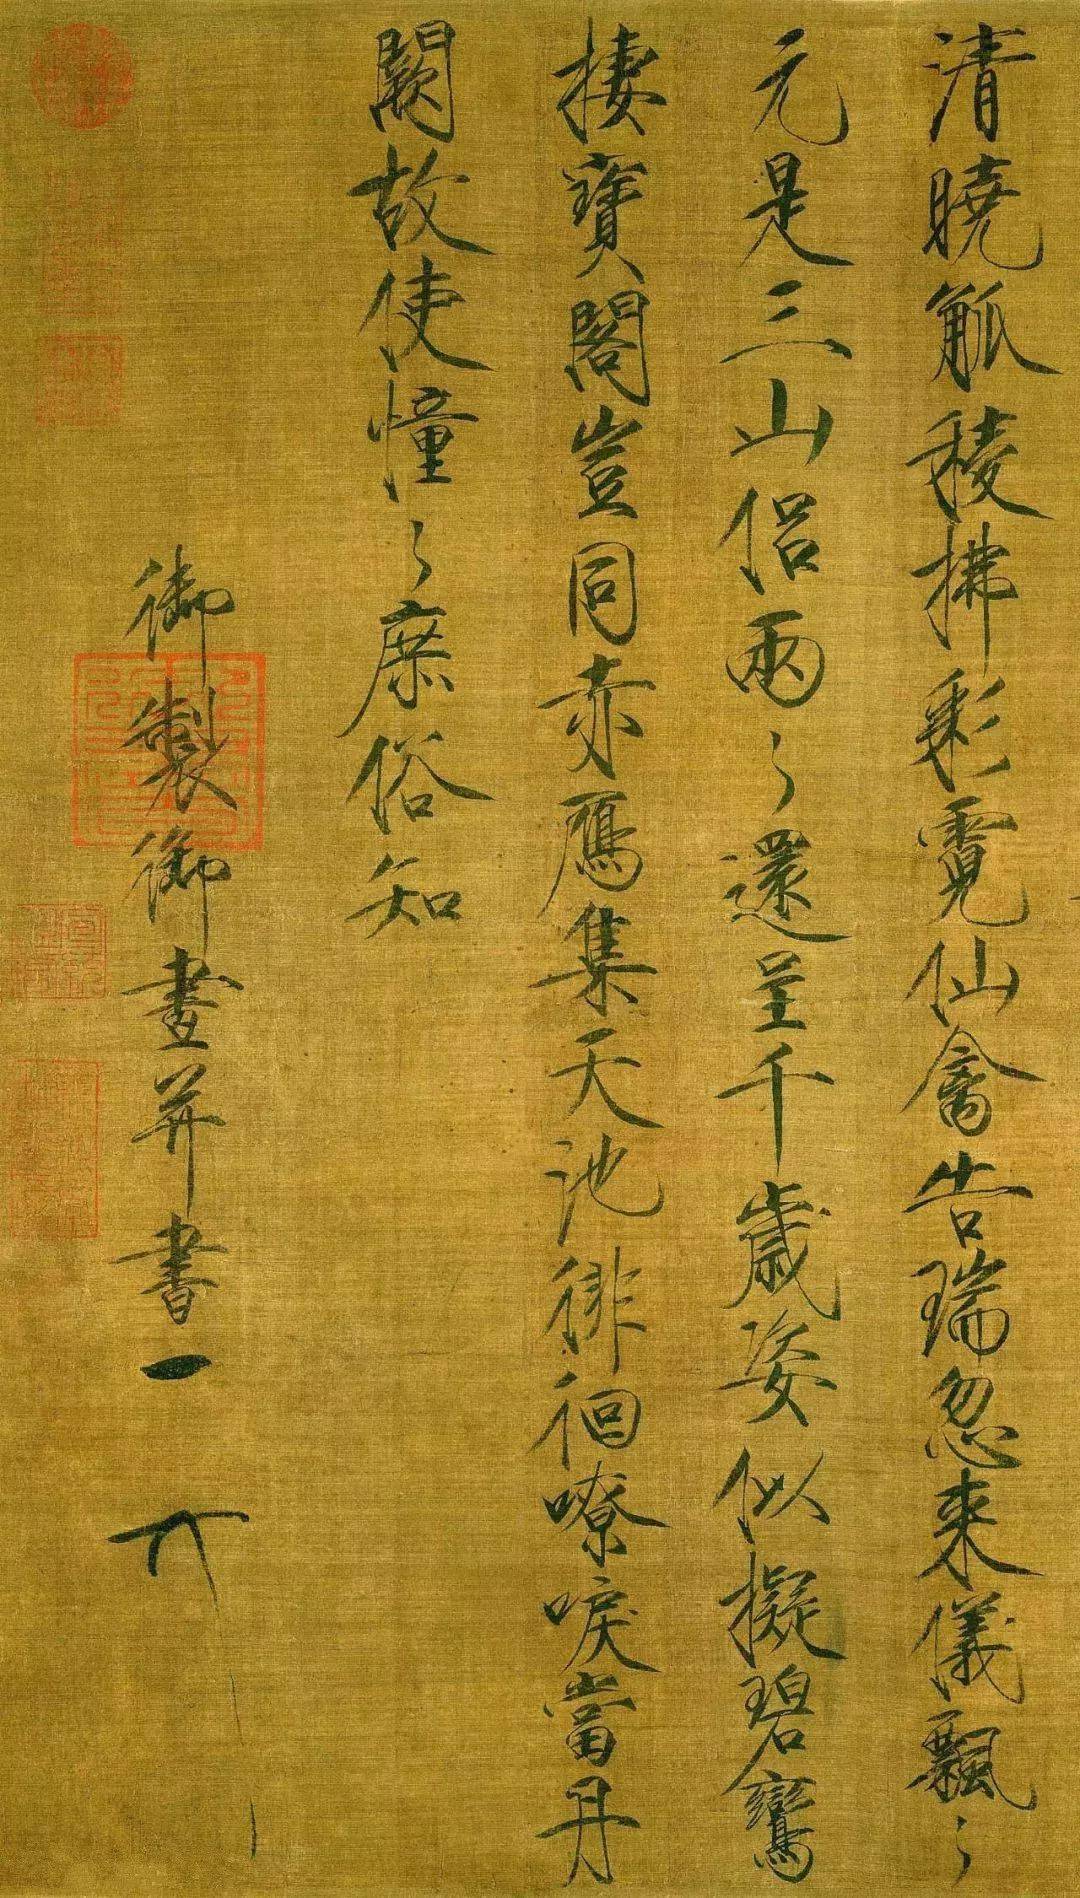 清曉觚稜拂彩霓仙禽告瑞忽來儀飄〻
元是三山侶兩〻還呈千歲姿似擬碧鸞
棲寶閣豈同赤鴈集天池徘徊嘹唳當丹
闕故使憧〻庶俗知
御製御畫并書